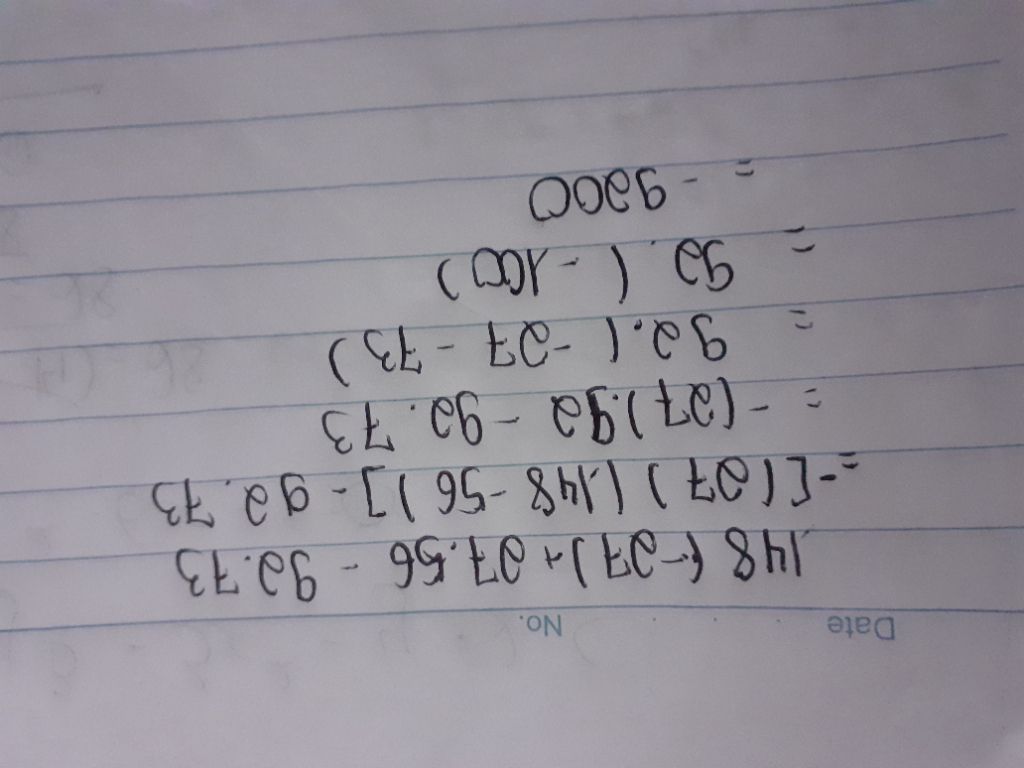 Date No.
148 (-27) + 27.56 - 92.73
= -[(27) (148 - 56)] - 92.73
= -(27).92 - 92.73
= 92.(-27 - 73)
= 92.(-100)
= -9200